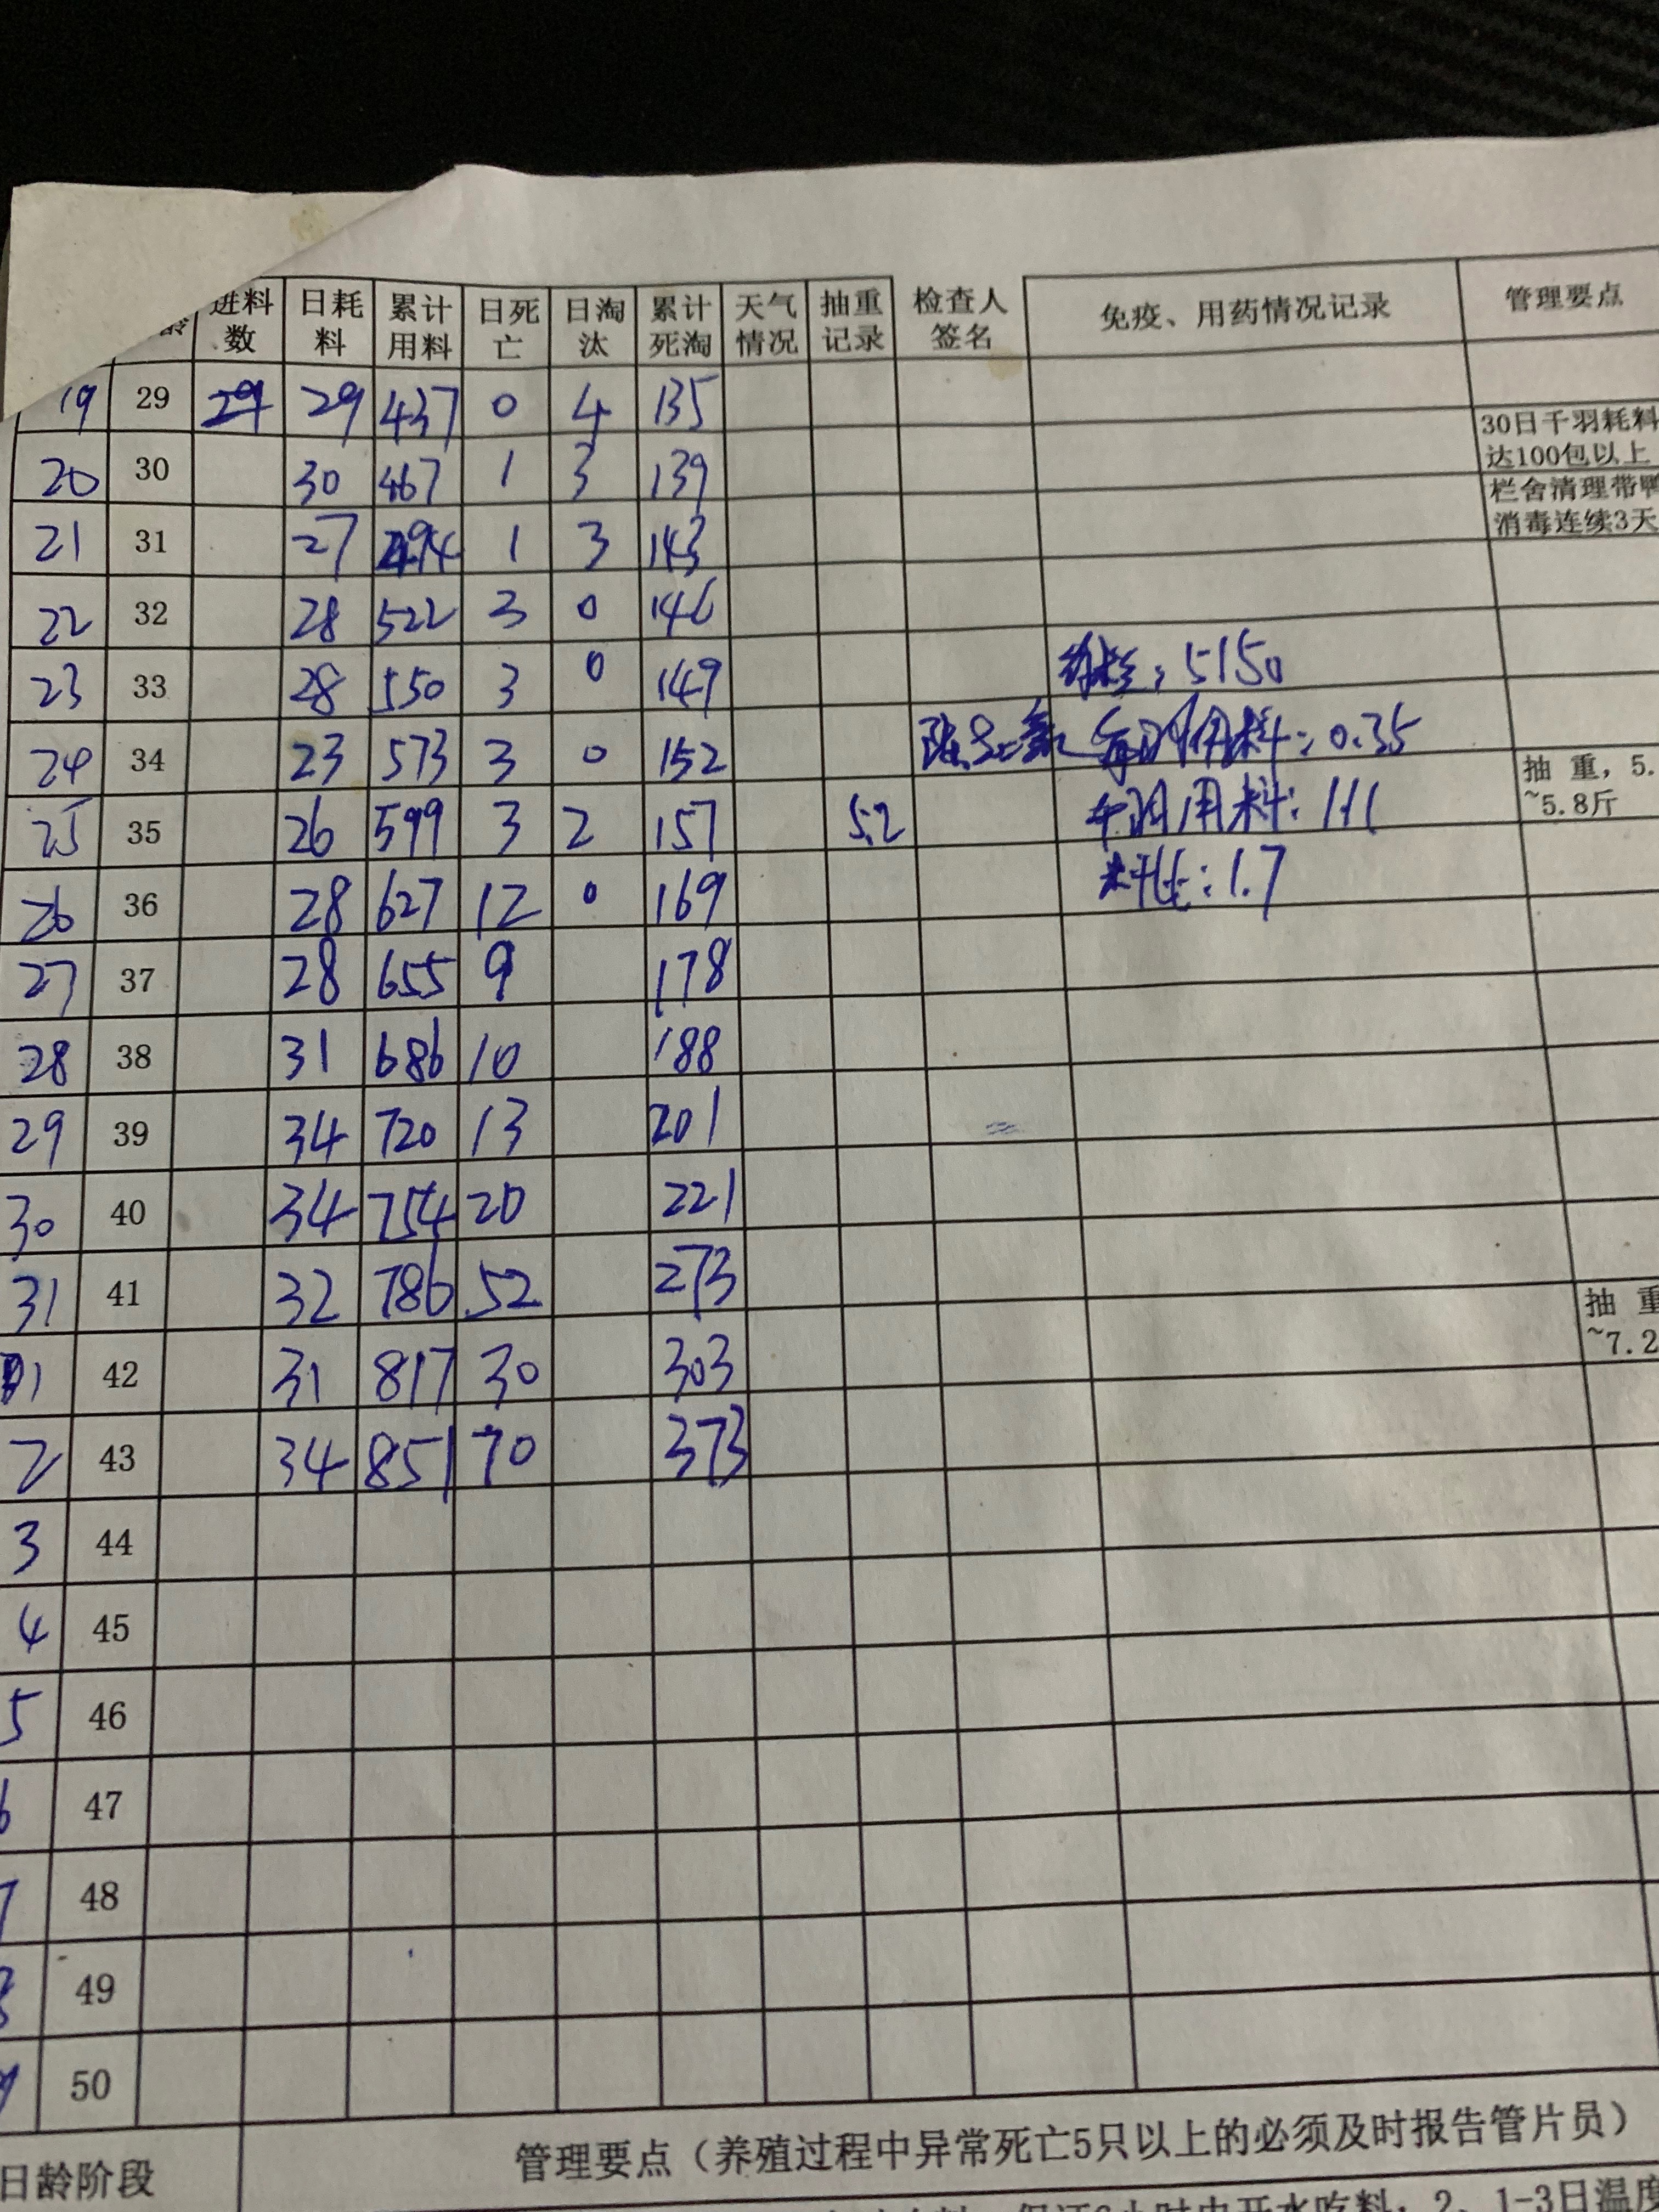 龄 进料数 日耗料 累计用料 日死亡 日淘汰 累计死淘 天气情况 抽重记录 检查人签名 免疫、用药情况记录 管理要点
19 29 29 29 437 0 4 135
20 30 30 467 1 3 139 30日千羽耗料达100包以上
21 31 27 494 1 3 143 栏舍清理带鸭消毒连续3天
22 32 28 522 3 0 146
23 33 28 550 3 0 149 5150
24 34 23 573 3 0 152 用料:0.35
25 35 26 599 3 2 157 5.2 用料:111 抽 重,5. ~5.8斤
26 36 28 627 12 0 169 料比:1.7
27 37 28 655 9 178
28 38 31 686 10 188
29 39 34 720 13 201
30 40 34 754 20 221
31 41 32 786 52 273 抽 重 ~7.2
1 42 31 817 30 303
2 43 34 851 70 373
3 44
4 45
5 46
6 47
7 48
49
50
日龄阶段 管理要点（养殖过程中异常死亡5只以上的必须及时报告管片员）